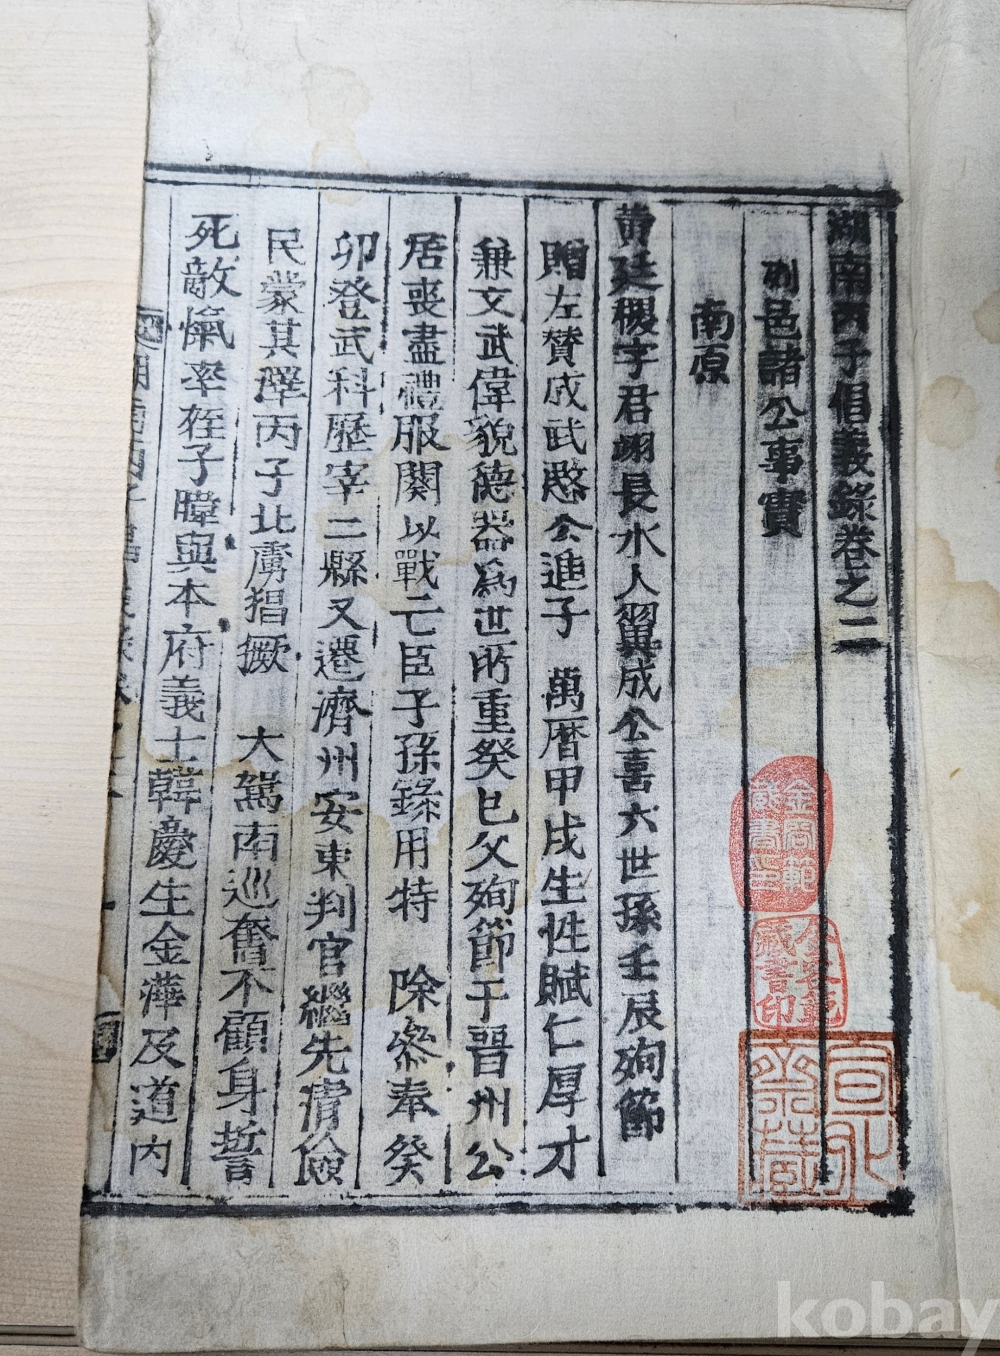 湖南丙子倡義錄卷之二
列邑諸公事實
南原
黃廷稷字君翊長水人翼成公喜六世孫壬辰殉節
贈左贊成武愍公進子 萬曆甲戌生性賦仁厚才
兼文武偉貌德器爲世所重癸巳父殉節于晋州公
居喪盡禮服闋以戰亡臣子孫錄用特 除參奉癸
卯登武科歷宰二縣又遷濟州安東判官繼先淸儉
民蒙其澤丙子北虜猖獗 大駕南巡奮不顧身誓
死敵愾率侄子暐與本府義士韓慶生金灌及道內
宣
kobay